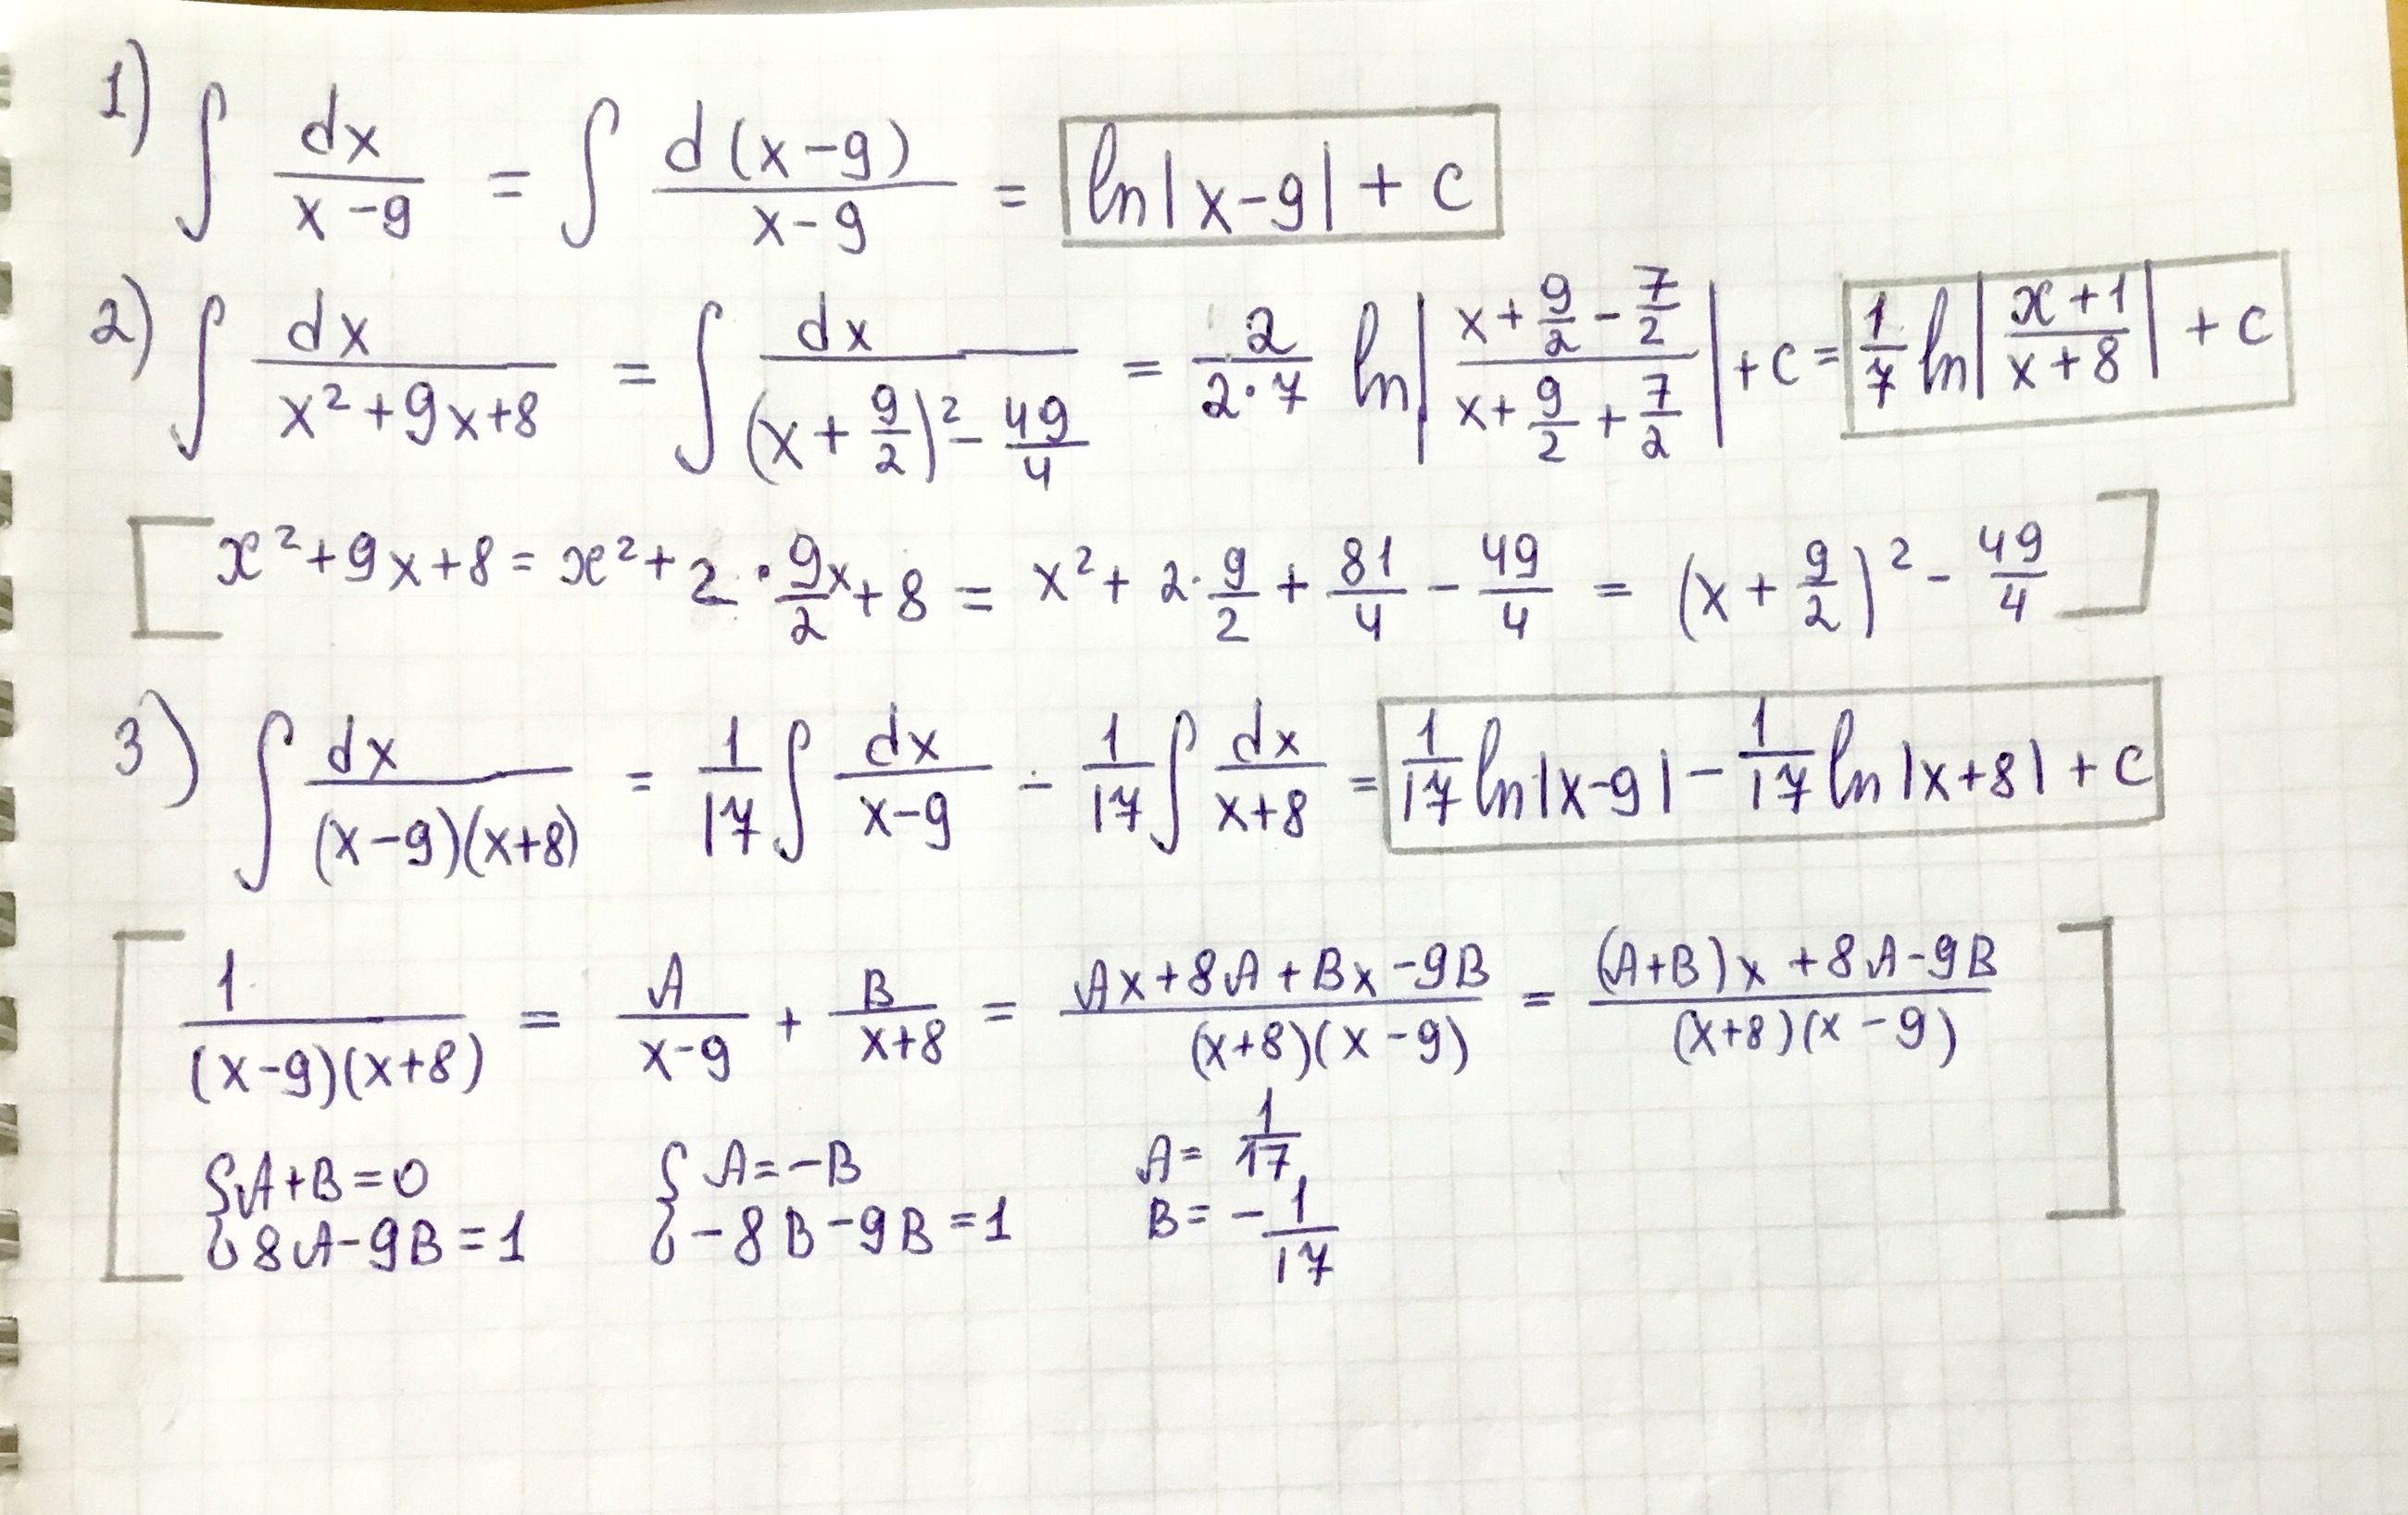 1) ∫ dx/(x-9) = ∫ d(x-9)/(x-9) = ln|x-9| + C
2) ∫ dx/(x²+9x+8) = ∫ dx/((x+9/2)²-49/4) = 2/(2·7) ln|(x+9/2-7/2)/(x+9/2+7/2)| + C = 1/7 ln|(x+1)/(x+8)| + C
[x²+9x+8 = x²+2·9/2x+8 = x²+2·9/2+81/4-49/4 = (x+9/2)²-49/4]
3) ∫ dx/((x-9)(x+8)) = 1/17 ∫ dx/(x-9) - 1/17 ∫ dx/(x+8) = 1/17 ln|x-9| - 1/17 ln|x+8| + C
[1/((x-9)(x+8)) = A/(x-9) + B/(x+8) = (Ax+8A+Bx-9B)/((x+8)(x-9)) = ((A+B)x+8A-9B)/((x+8)(x-9))
{A+B=0 {A=-B A=1/17
8A-9B=1 -8B-9B=1 B=-1/17]